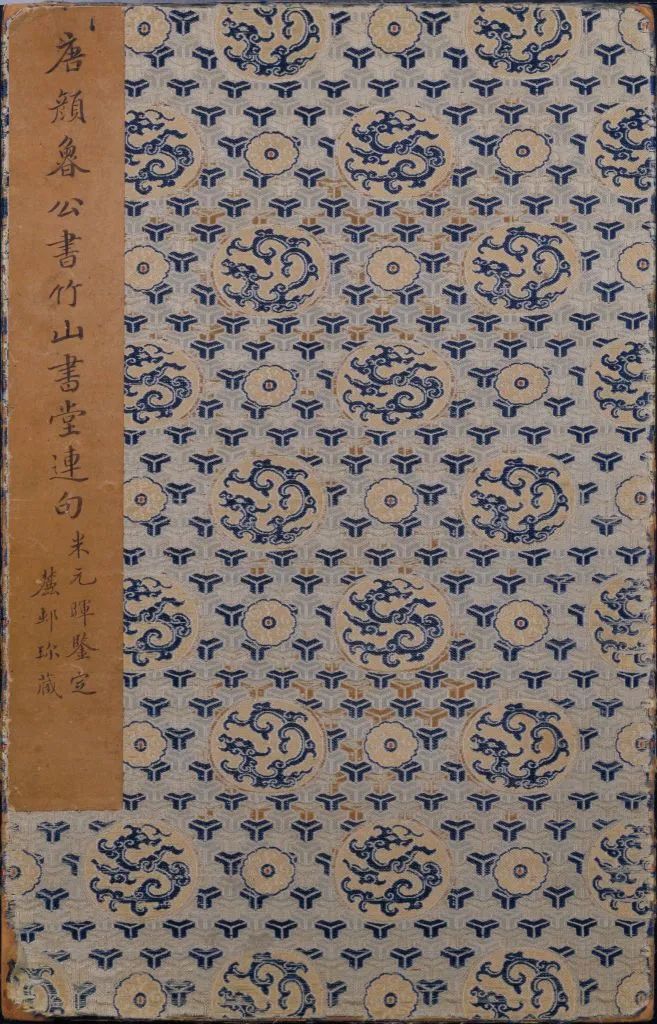 唐顔魯公書竹山書堂連句
米元暉鑒定
蕉邨珍藏